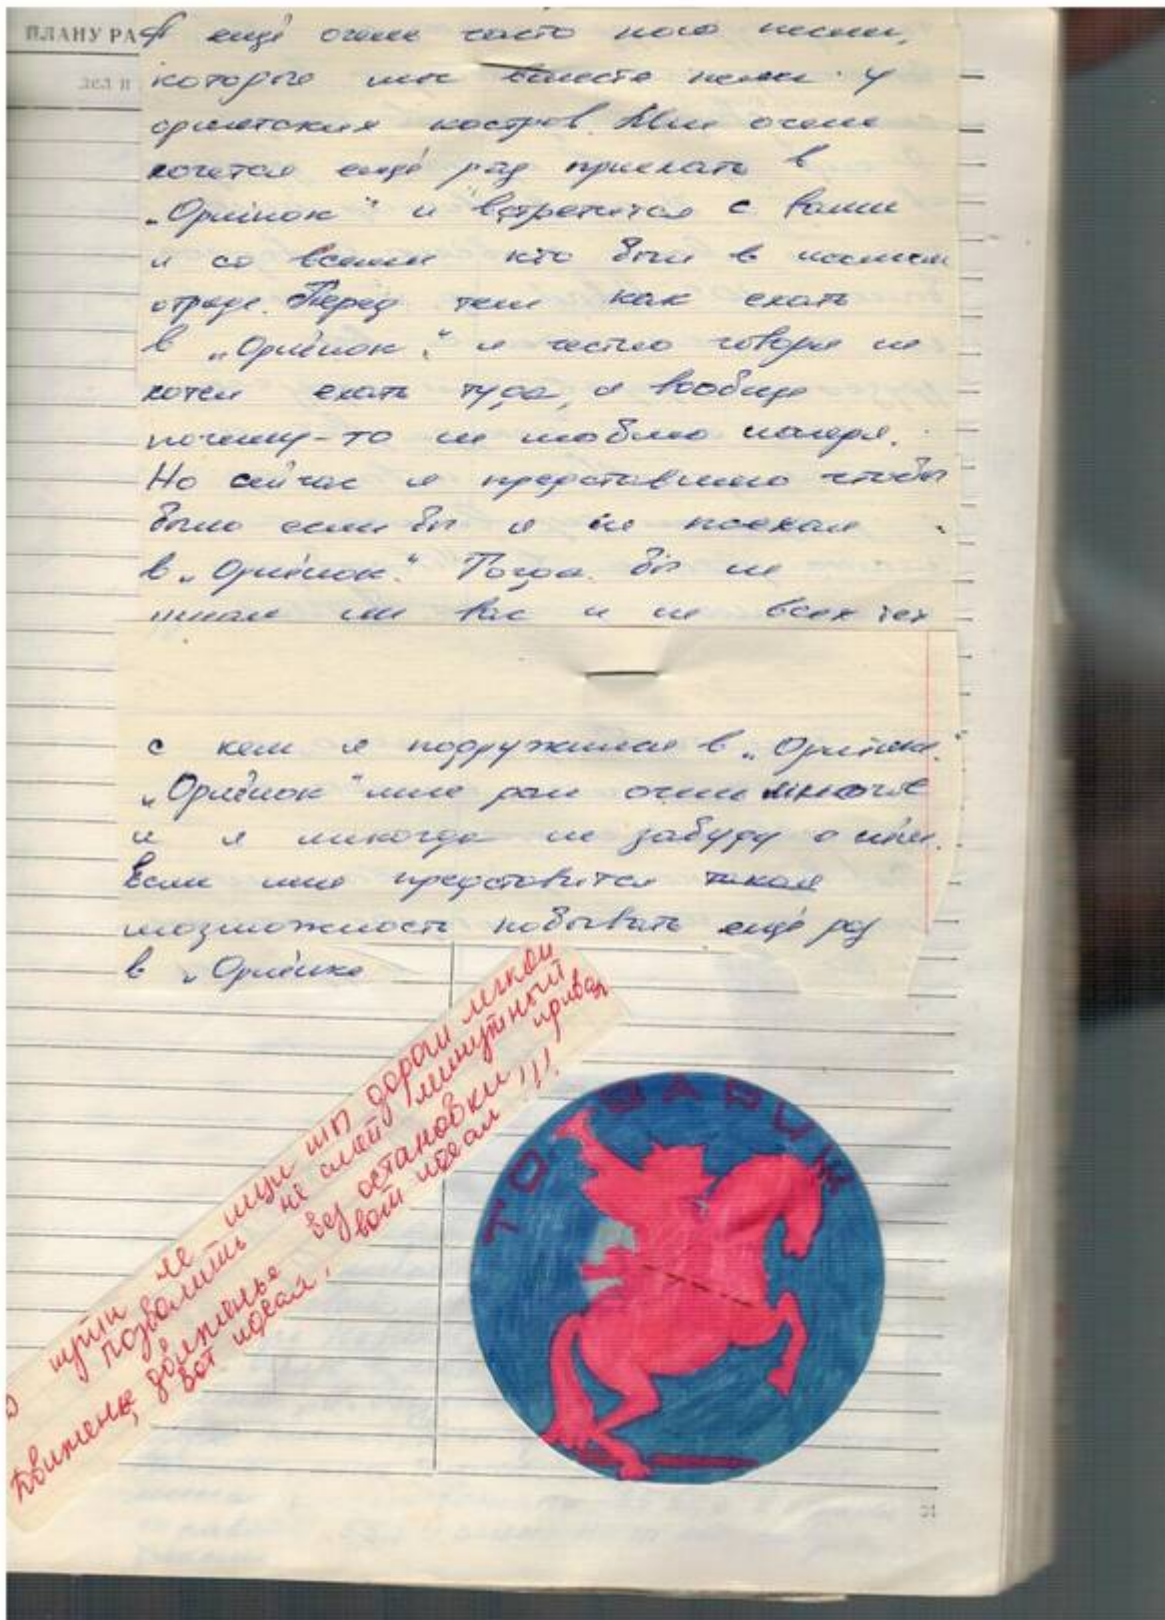 ПЛАНУ РА
дел п
Я ещё очень часто пою песни,
которые мы вместе пели у
орлятских костров. Мне очень
хочется ещё раз приехать в
„Орлёнок“ и встретится с вами
и со всеми кто был в нашем
отряде. Перед тем как ехать
в „Орлёнок“ я честно говоря не
хотел ехать туда, я вообще
почему-то не люблю лагеря.
Но сейчас я представляю чтобы
было если бы я не поехал
в „Орлёнок“. Тогда бы не
узнал ни вас и не всех тех
с кем я подружился в „Орлёнке“.
„Орлёнок“ мне дал очень многое
и я никогда не забуду о нём.
Если мне представится такая
возможность побывать ещё раз
в „Орлёнке
пути не ищи ты дороги легкой
позволить не смей минутный привал
Движенье, движенье без остановки !!!
Вот идеал, вот идеал
ТОВАРИЩ
31